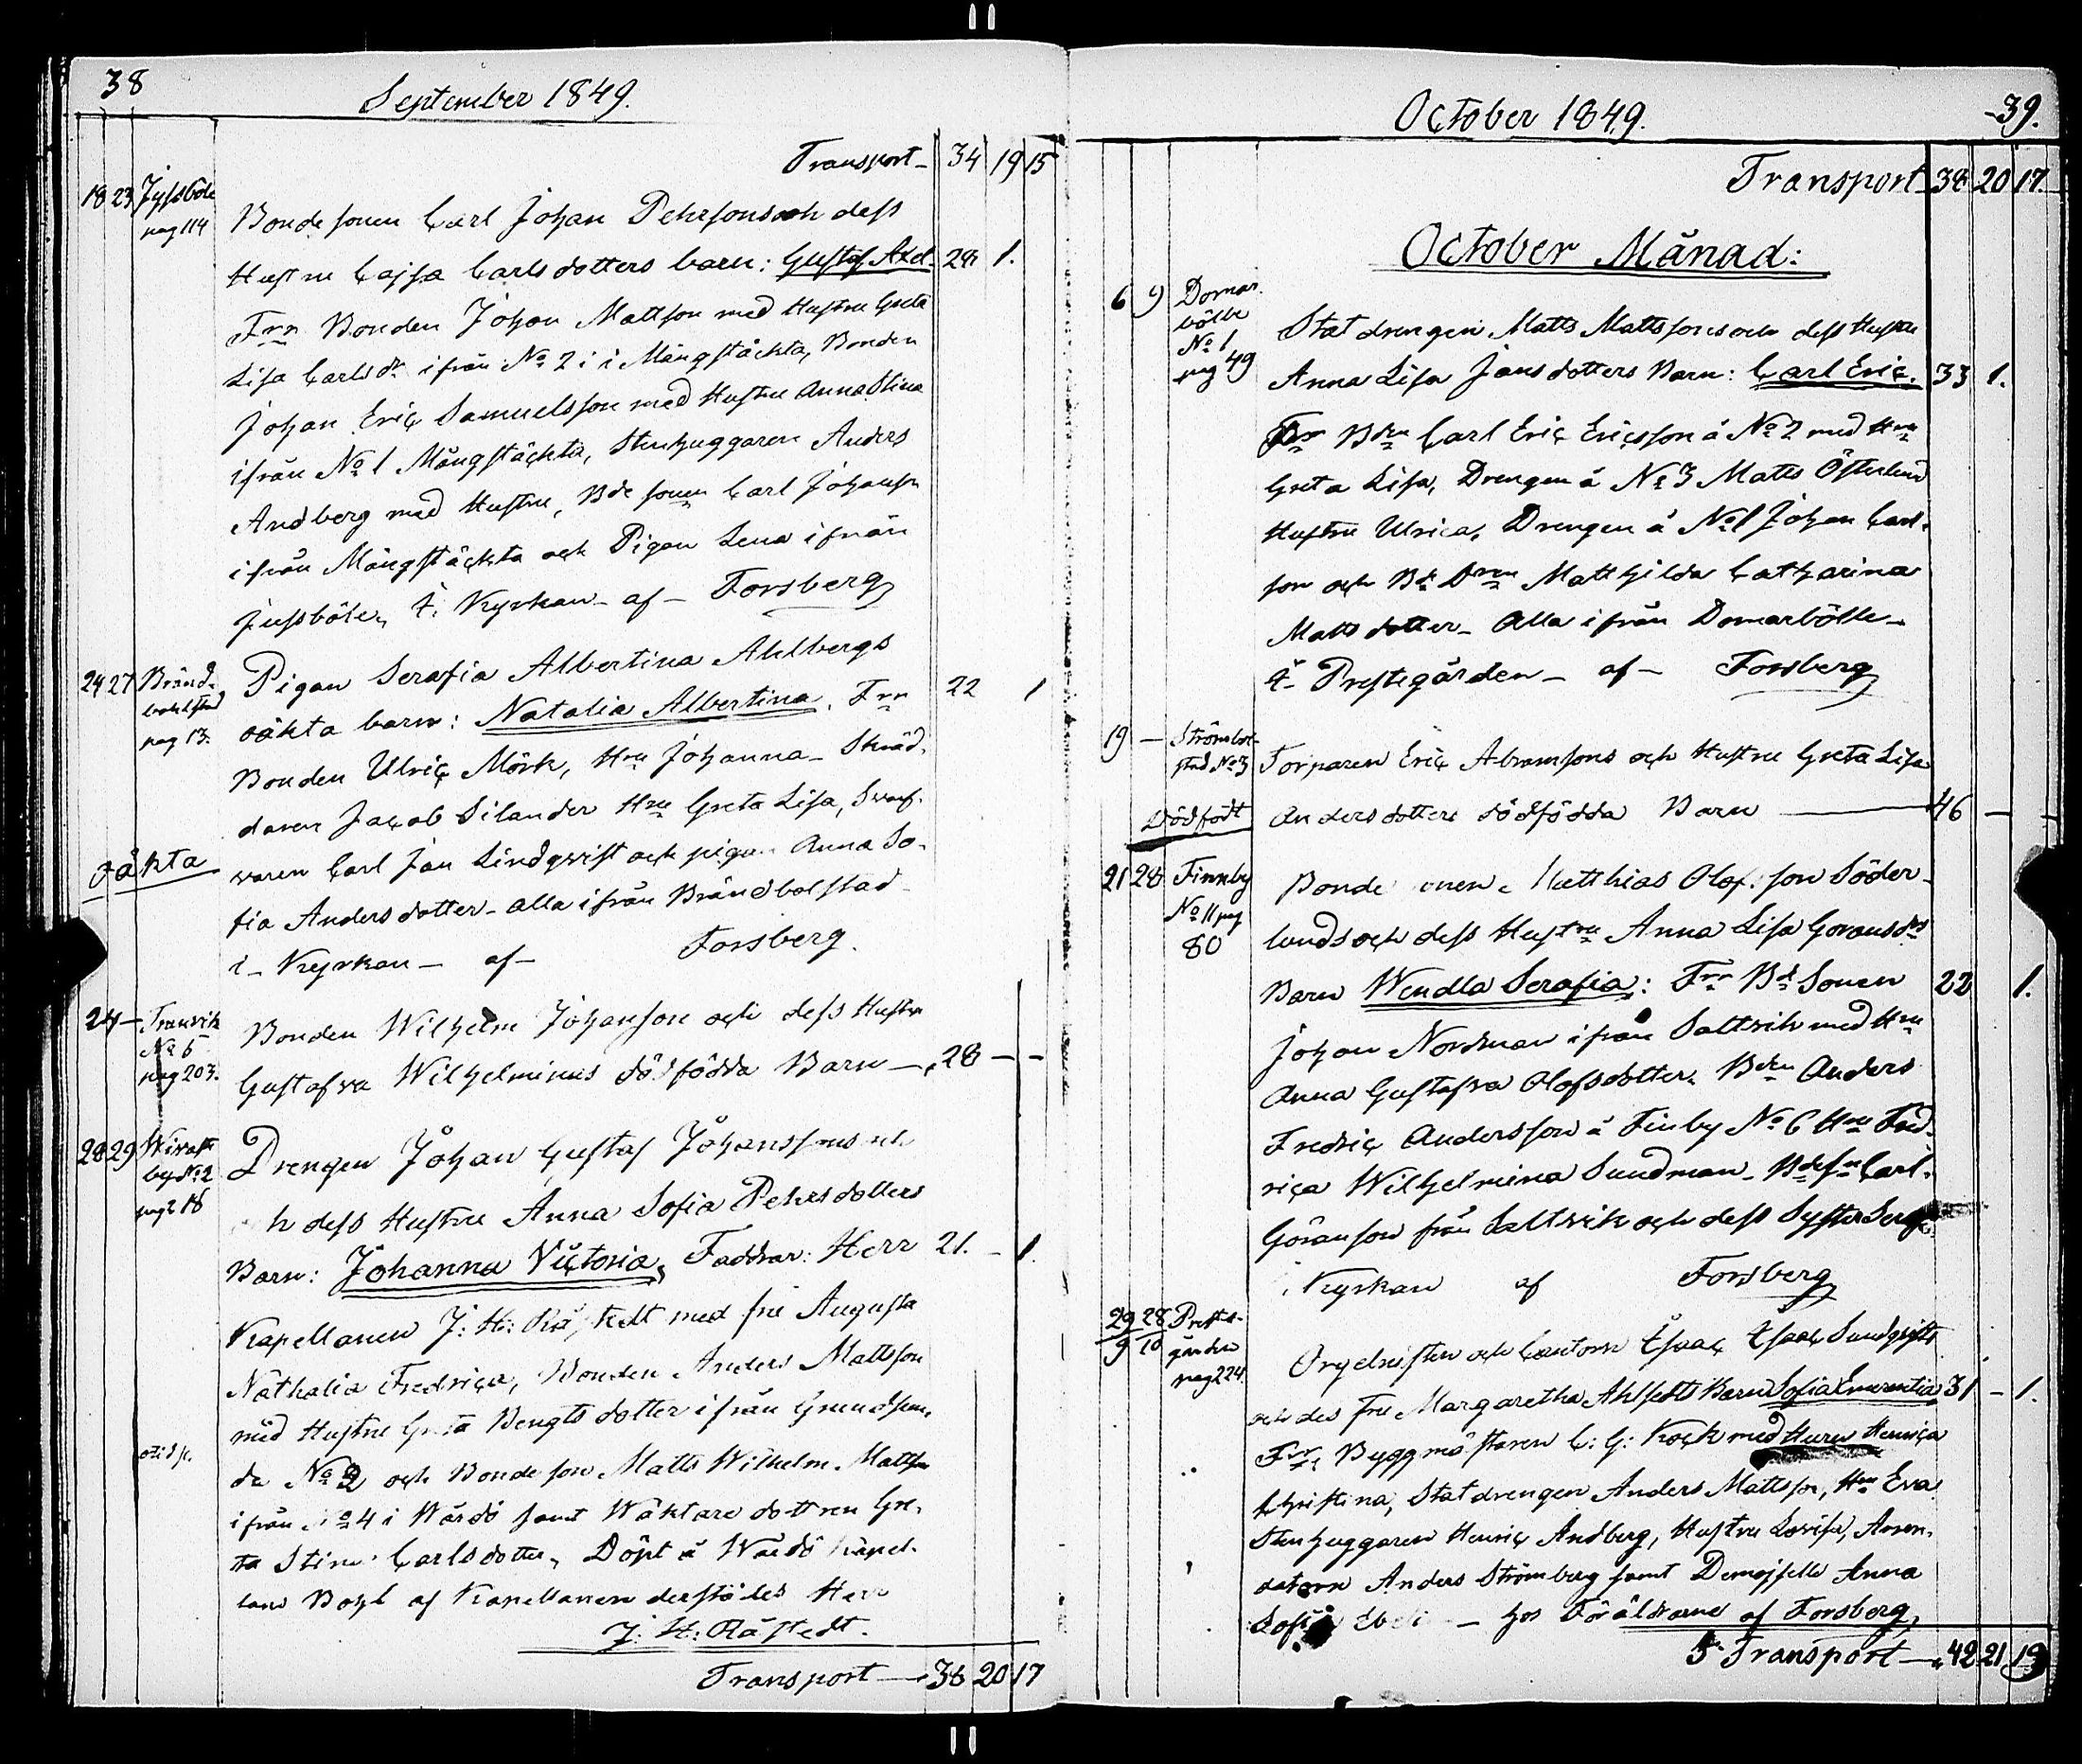 38
September 1849.
Transport - 34 19 15
18 23 Jyssböle
pag 114
Bondesonen Carl Johan Pehrsons och dess
Hustru Cajsa Carlsdotters barn: Gustaf Axel. 28 1.
Frr Bonden Johan Mattson med Hustru Greta
Lisa Carlsdr ifrån No 2 i Mångstäckta, Bonden
Johan Eric Samuelsson med Hustru Anna Stina
ifrån No 1 Mångstäckta, Stenhuggaren Anders
Andberg med Hustru, Bdesonen Carl Johansn
ifrån Mångstäckta och Pigan Lena ifrån
Jussböle, i Kyrkan - af - Forsberg
24 27 Bränd-
bolstad
pag 13.
Pigan Serafia Albertina Ahlbergs
oäkta barn: Natalia Albertina. Frr 22 1
Bonden Ulric Mörk, Hru Johanna - Skräd-
daren Jacob Silander Hru Greta Lisa, Swarf-
oäkta
waren Carl Jan Lindqvist och pigan Anna So-
fia Andersdotter - alla ifrån Brändbolstad -
i - Kyrkan - af - Forsberg.
24 - Tranvik
No 5
pag 203.
Bonden Wilhelm Johanson och dess Hustru
Gustafva Wilhelminas dödfödda Barn - 28 - -
28 29 Wivast
by No 2
pag 218
Drengen Johan Gustaf Johanssons och
dess Hustru Anna Sofia Pehrsdotters
Barn: Johanna Victoria, Faddrar: Herr 21. - 1.
Kapellanen J: H: Råstedt med fru Augusta
Nathalia Fredrica, Bonden Anders Mattson
med Hustru Greta Bengtsdotter ifrån Grundsun-
da No 2 och Bondeson Matts Wilhelm Mattsn
ifrån No 4 i Wårdö samt Wäktaredottren Gre-
ta Stina Carlsdotter, Döpt å Wårdö Kapel-
lans Bohl af Kapellanen derstädes Herr
J: H: Råstedt.
Transport - 38 20 17
October 1849. 39.
Transport 38 20 17
October Månad:
6 9 Domar-
bölle
No 1
pag 49
Statdrengen Matts Mattsons och dess Hustru
Anna Lisa Jansdotters Barn: Carl Eric. 33 1.
Frr Bden Carl Eric Ericsson å No 2 med Hru
Greta Lisa, Drengen å No 3 Matts Österlund
Hustru Ulrica, Drengen å No 1 Johan Carl-
son och Bd Dren Mathilda Catharina
Mattsdotter - alla ifrån Domarbölle -
i Prestegården - af - Forsberg
19 - Strömbol-
stad No 3
Dödfödt
Torparen Eric Abramsons och Hustru Greta Lisa
Andersdotters dödfödda Barn 46 - -
21 28 Finnby
No 11 pag
80
Bondesonen Matthias Olofson Söder-
lunds och dess Hustru Anna Lisa Göransdrs
Barn Wendla Serafia: Frr Bd Sonen 22 1.
Johan Nordman ifrån Saltvik med Hru
Anna Gustafva Olofsdotter, Bden Anders
Fredric Andersson å Finby No 6 Hru Fred-
rica Wilhelmina Sundman - Bdesn Carl
Göranson från Saltvik och dess Syster Seraf
i Kyrkan af Forsberg
29/9 28/10 Preste-
gården
pag 224.
Orgelnisten och Cantorn Isaac Isaac Sundqvists
och des fru Margaretha Ahlstedts Barn Sofia Emerentia 31 - 1.
Frr Byggmästaren C: G: Kock med Hustru Henrica
Christina, Statdrengen Anders Mattson, Hru Eva
Stenhuggaren Henric Andberg, Hustru Lovisa, Arren-
datorn Anders Strömberg samt Demoiselle Anna
Sofia - hos Föräldrarne af Forsberg,
Transport - 42 21 19